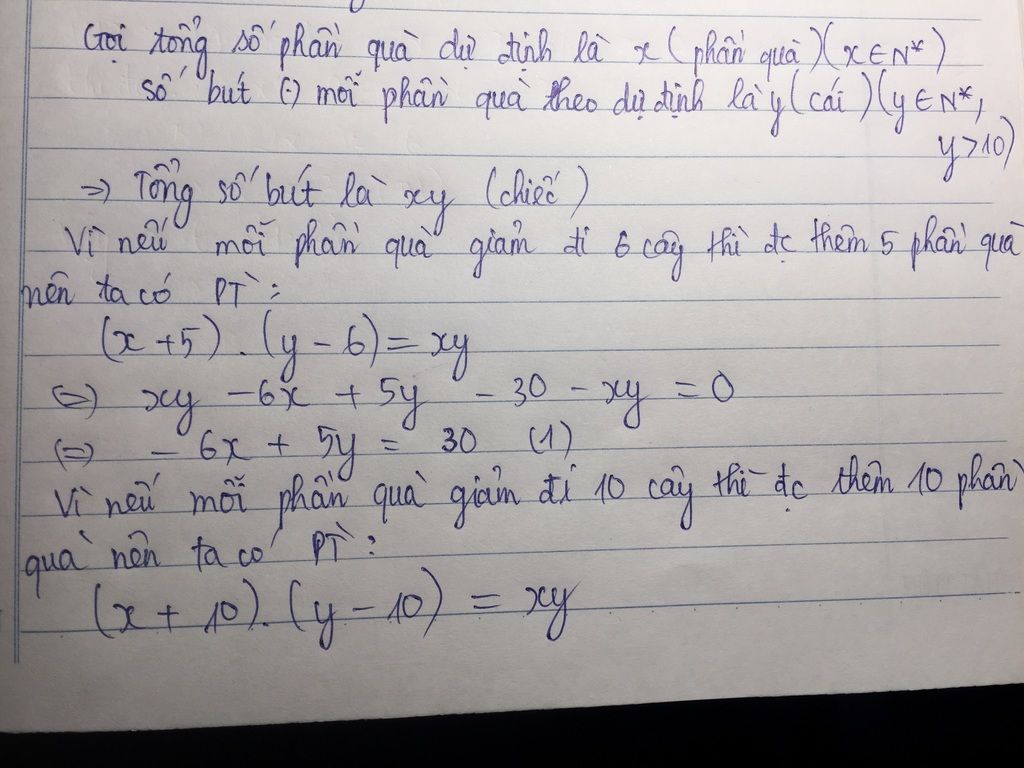 Gọi tổng số phần quà dự định là x (phần quà)(x∈N*)
số bút (-) mỗi phần quà theo dự định là y (cái)(y∈N*,
y>10)
=> Tổng số bút là xy (chiếc)
Vì nếu mỗi phần quà giảm đi 6 cây thì đc thêm 5 phần quà
nên ta có PT:
(x+5).(y-6)=xy
(=) xy -6x + 5y - 30 - xy = 0
(=) -6x + 5y = 30 (1)
Vì nếu mỗi phần quà giảm đi 10 cây thì đc thêm 10 phần
quà nên ta có PT:
(x + 10).(y-10) = xy